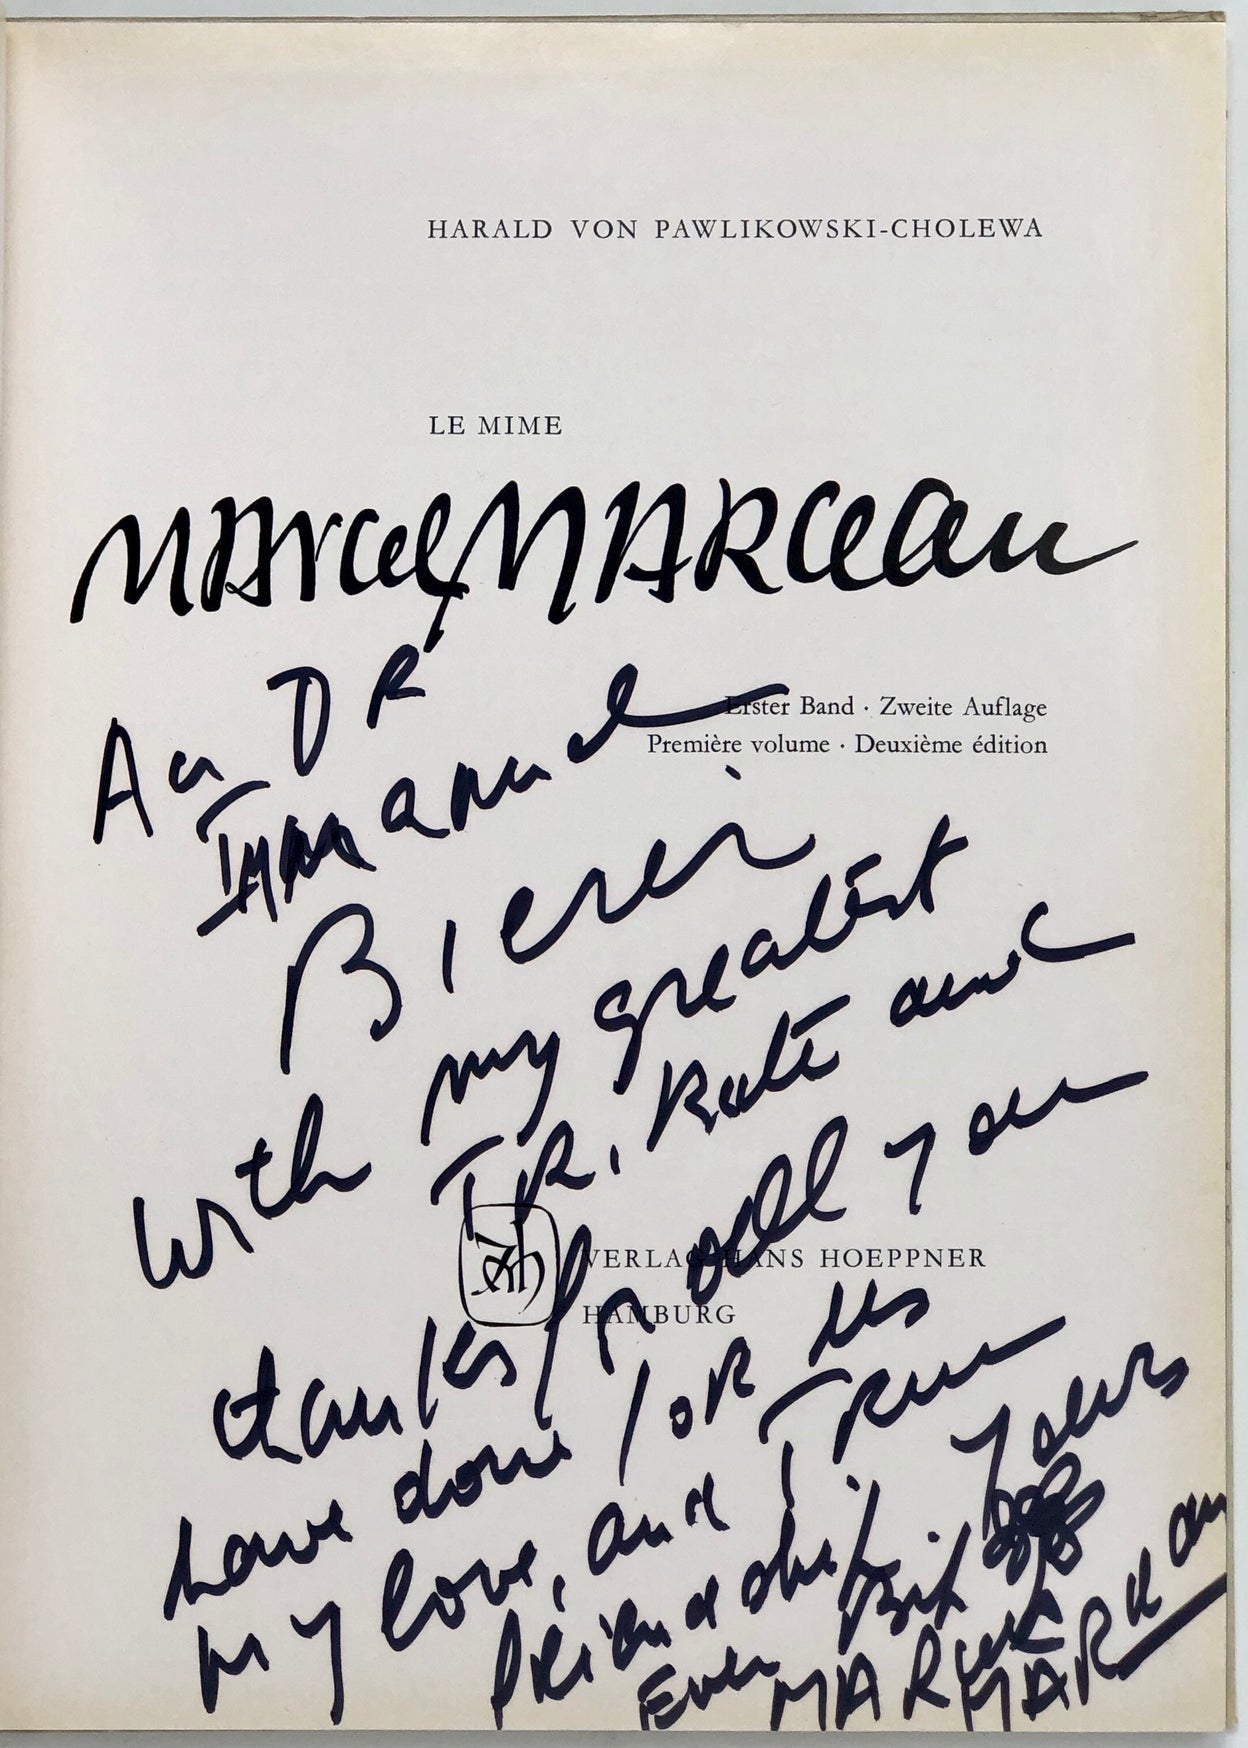 HARALD VON PAWLIKOWSKI-CHOLEWA
LE MIME
Marcel MARceau
Erster Band · Zweite Auflage
Première volume · Deuxième édition
Au DR
Immanuel
Bierer
With my greatest
TR,
and
thanks for all you
VERLAG HANS HOEPPNER
HAMBURG
have done foR us
my love, and True
fRiendship Yours
Ever Bip
MARcel MARceau